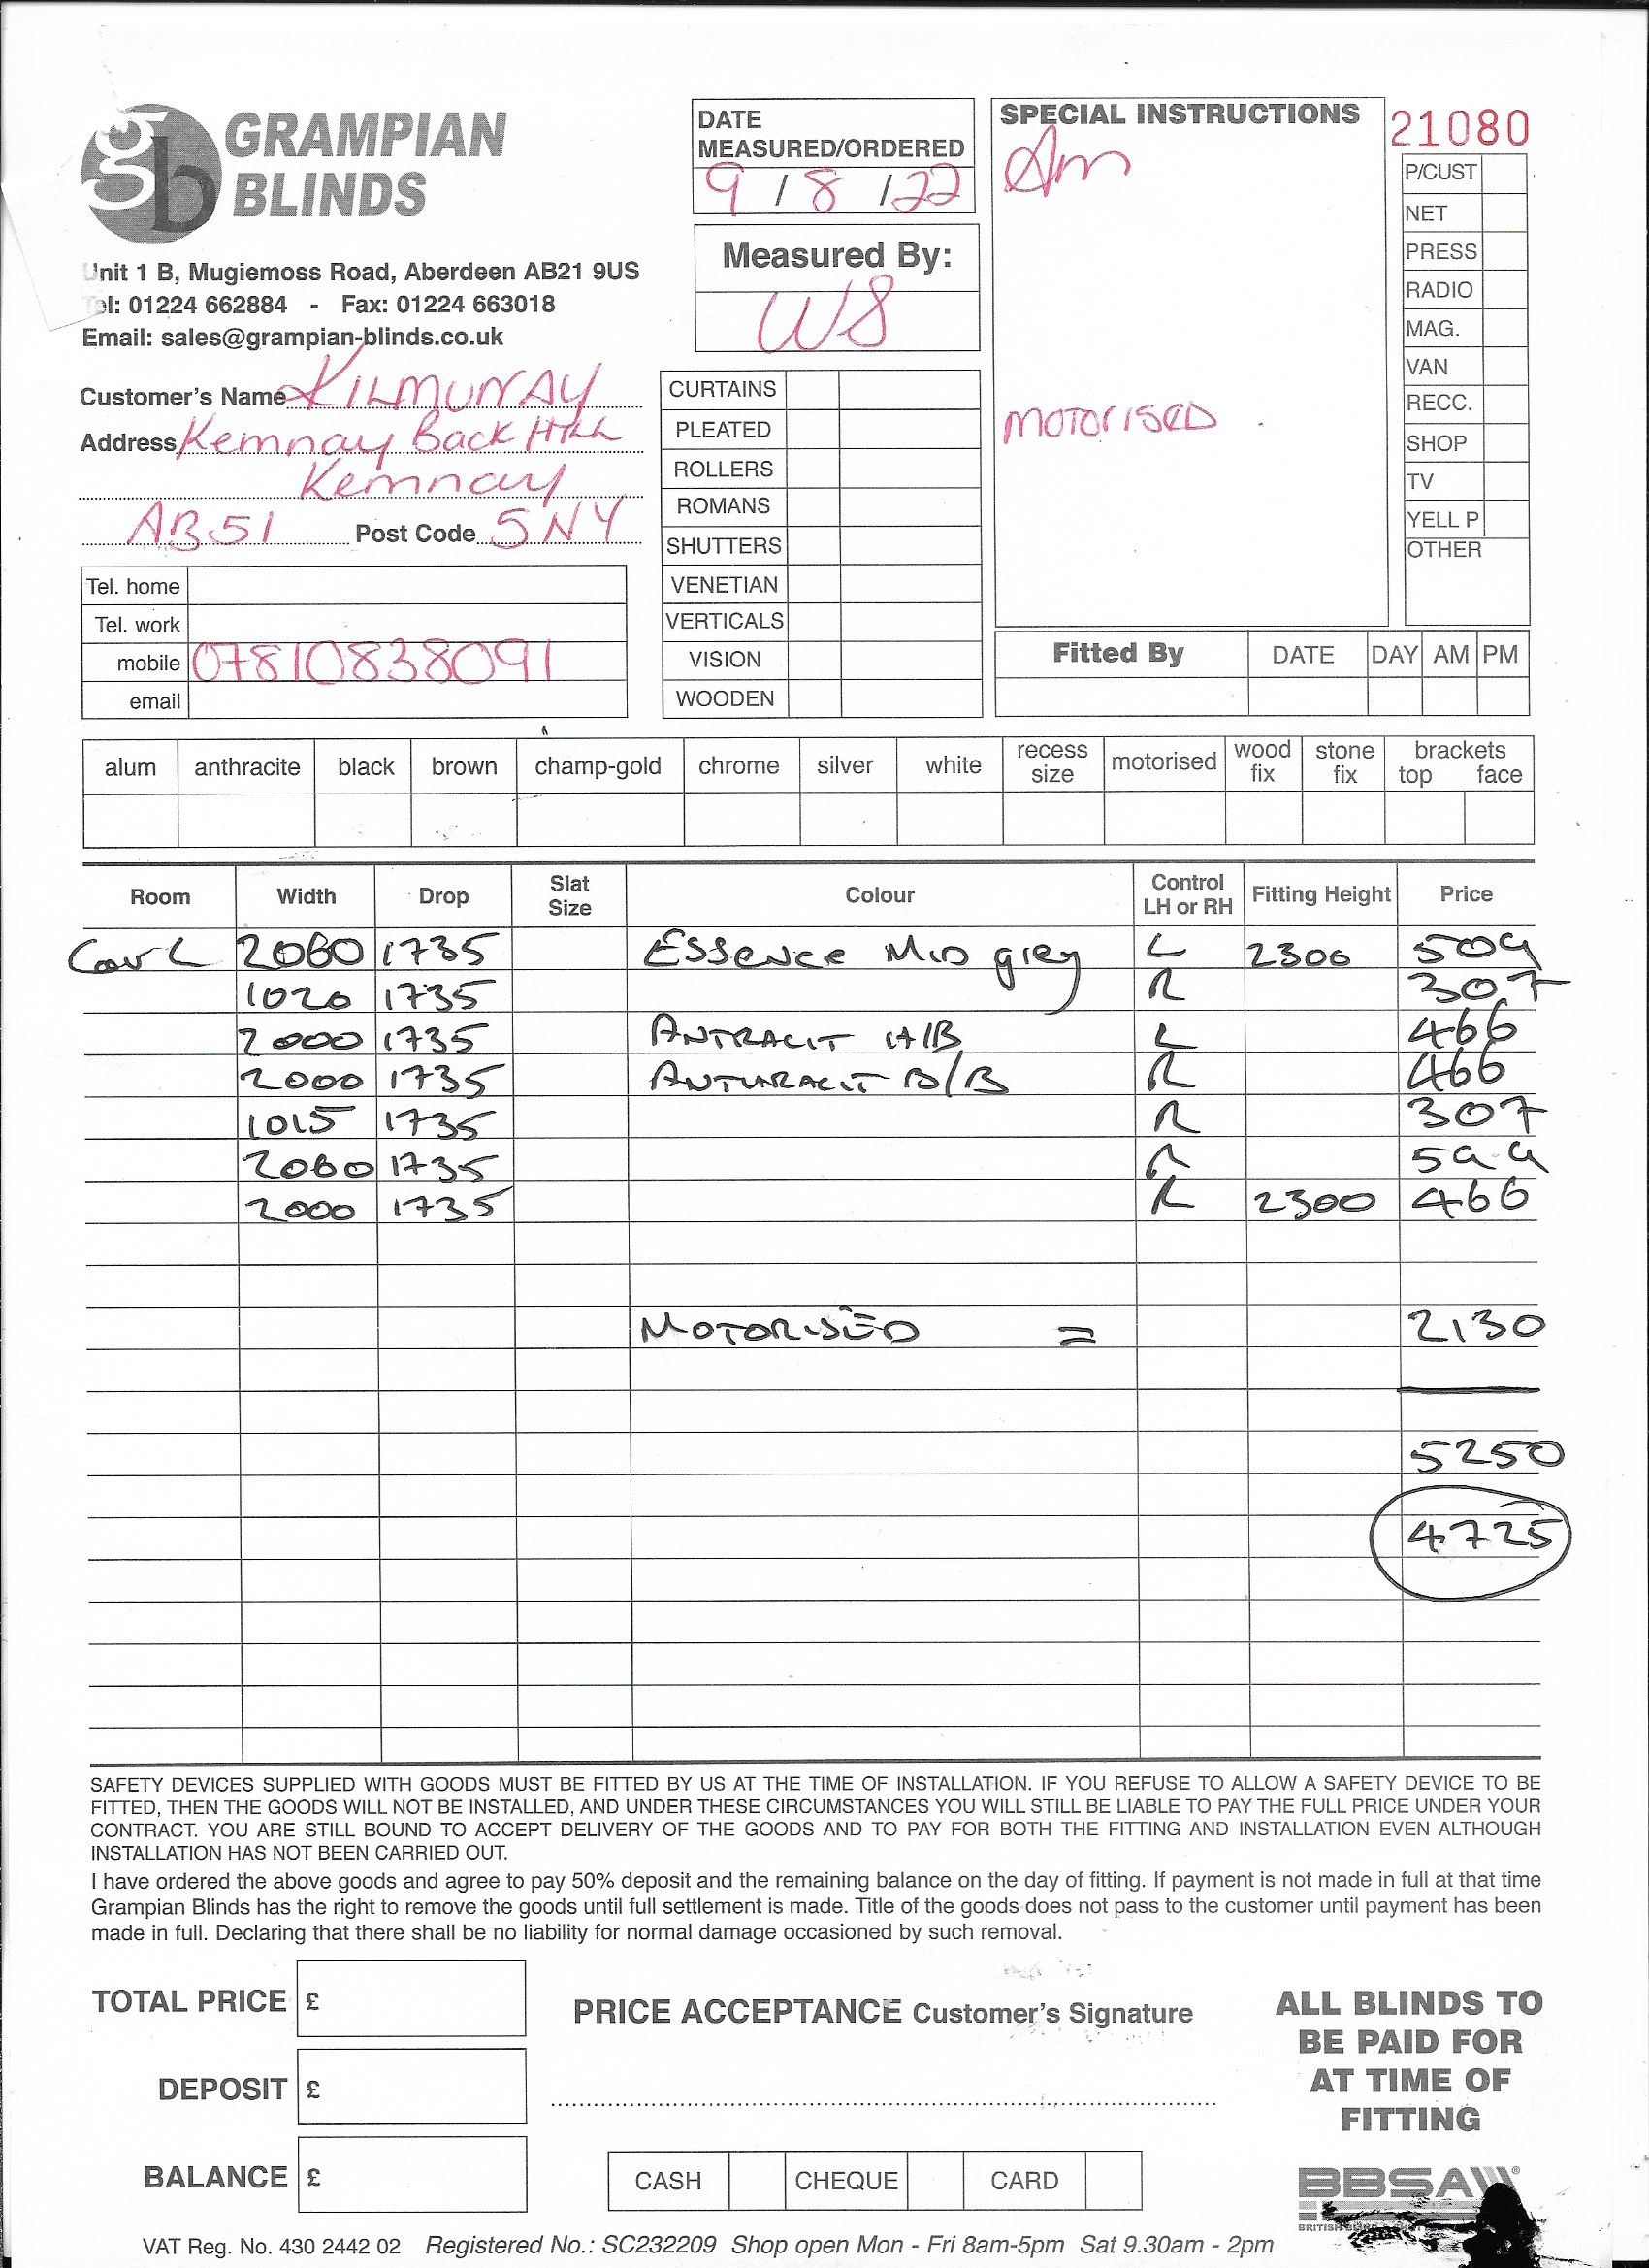 GRAMPIAN
BLINDS
Unit 1 B, Mugiemoss Road, Aberdeen AB21 9US
Tel: 01224 662884 - Fax: 01224 663018
Email: sales@grampian-blinds.co.uk
DATE
MEASURED/ORDERED
9 / 8 / 22
Measured By:
WS
SPECIAL INSTRUCTIONS
Am
MOTORISED
21080
P/CUST
NET
PRESS
RADIO
MAG.
VAN
RECC.
SHOP
TV
YELL P
OTHER
Customer's Name KILMURRAY
Address Kemnay Back Hill
Kemnay
AB51 Post Code 5NY
Tel. home
Tel. work
mobile 07810838091
email
CURTAINS
PLEATED
ROLLERS
ROMANS
SHUTTERS
VENETIAN
VERTICALS
VISION
WOODEN
Fitted By DATE DAY AM PM
alum anthracite black brown champ-gold chrome silver white recess size motorised wood fix stone fix brackets top face
Room Width Drop Slat Size Colour Control LH or RH Fitting Height Price
2060 1735 ESSENCE MID grey L 2300 509
1020 1735 R 307
2000 1735 ANTRACIT H/B L 466
2000 1735 ANTHRACIT B/B R 466
1015 1735 R 307
2060 1735 R
2000 1735 R 2300 466
MOTORISED = 2130
5250
4725
SAFETY DEVICES SUPPLIED WITH GOODS MUST BE FITTED BY US AT THE TIME OF INSTALLATION. IF YOU REFUSE TO ALLOW A SAFETY DEVICE TO BE
FITTED, THEN THE GOODS WILL NOT BE INSTALLED, AND UNDER THESE CIRCUMSTANCES YOU WILL STILL BE LIABLE TO PAY THE FULL PRICE UNDER YOUR
CONTRACT. YOU ARE STILL BOUND TO ACCEPT DELIVERY OF THE GOODS AND TO PAY FOR BOTH THE FITTING AND INSTALLATION EVEN ALTHOUGH
INSTALLATION HAS NOT BEEN CARRIED OUT.
I have ordered the above goods and agree to pay 50% deposit and the remaining balance on the day of fitting. If payment is not made in full at that time
Grampian Blinds has the right to remove the goods until full settlement is made. Title of the goods does not pass to the customer until payment has been
made in full. Declaring that there shall be no liability for normal damage occasioned by such removal.
TOTAL PRICE £
PRICE ACCEPTANCE Customer's Signature
DEPOSIT £
BALANCE £
CASH CHEQUE CARD
ALL BLINDS TO
BE PAID FOR
AT TIME OF
FITTING
BBSA
VAT Reg. No. 430 2442 02 Registered No.: SC232209 Shop open Mon - Fri 8am-5pm Sat 9.30am - 2pm